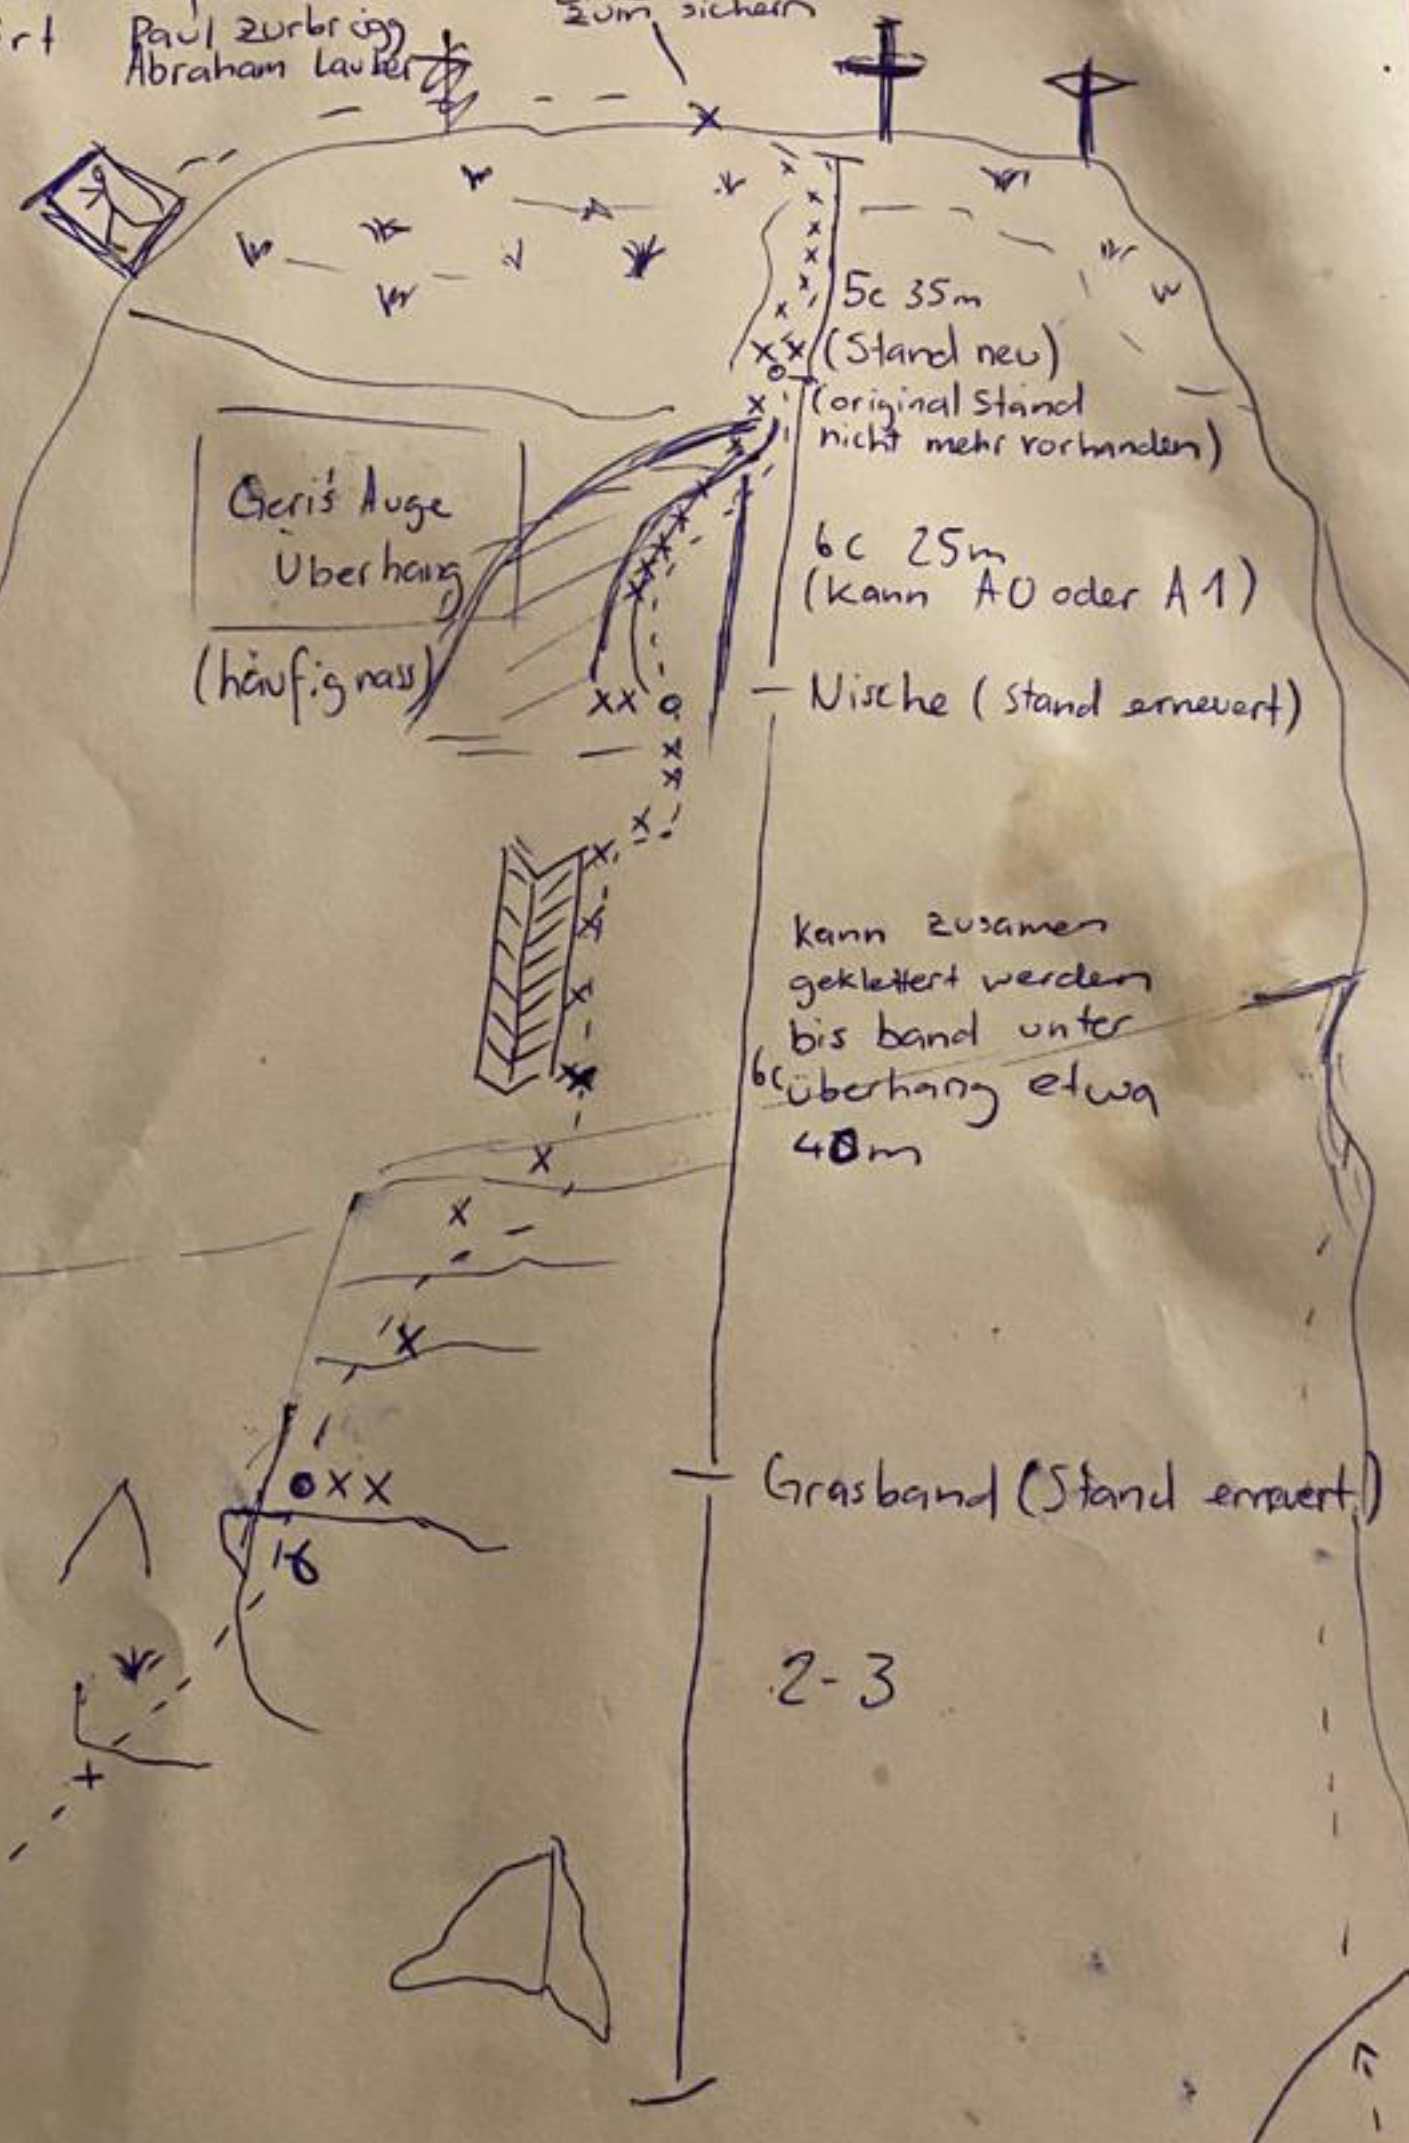 Paul Zurbrügg
Abraham Lauber
zum sichern
5c 35m
(Stand neu)
(original Stand
nicht mehr vorhanden)
Geri's Auge
Überhang
(häufig nass)
6c 25m
(kann A0 oder A1)
Nische (stand erneuert)
kann zusamen
geklettert werden
bis band unter
6c überhang etwa
40m
Grasband (Stand erneuert)
2-3